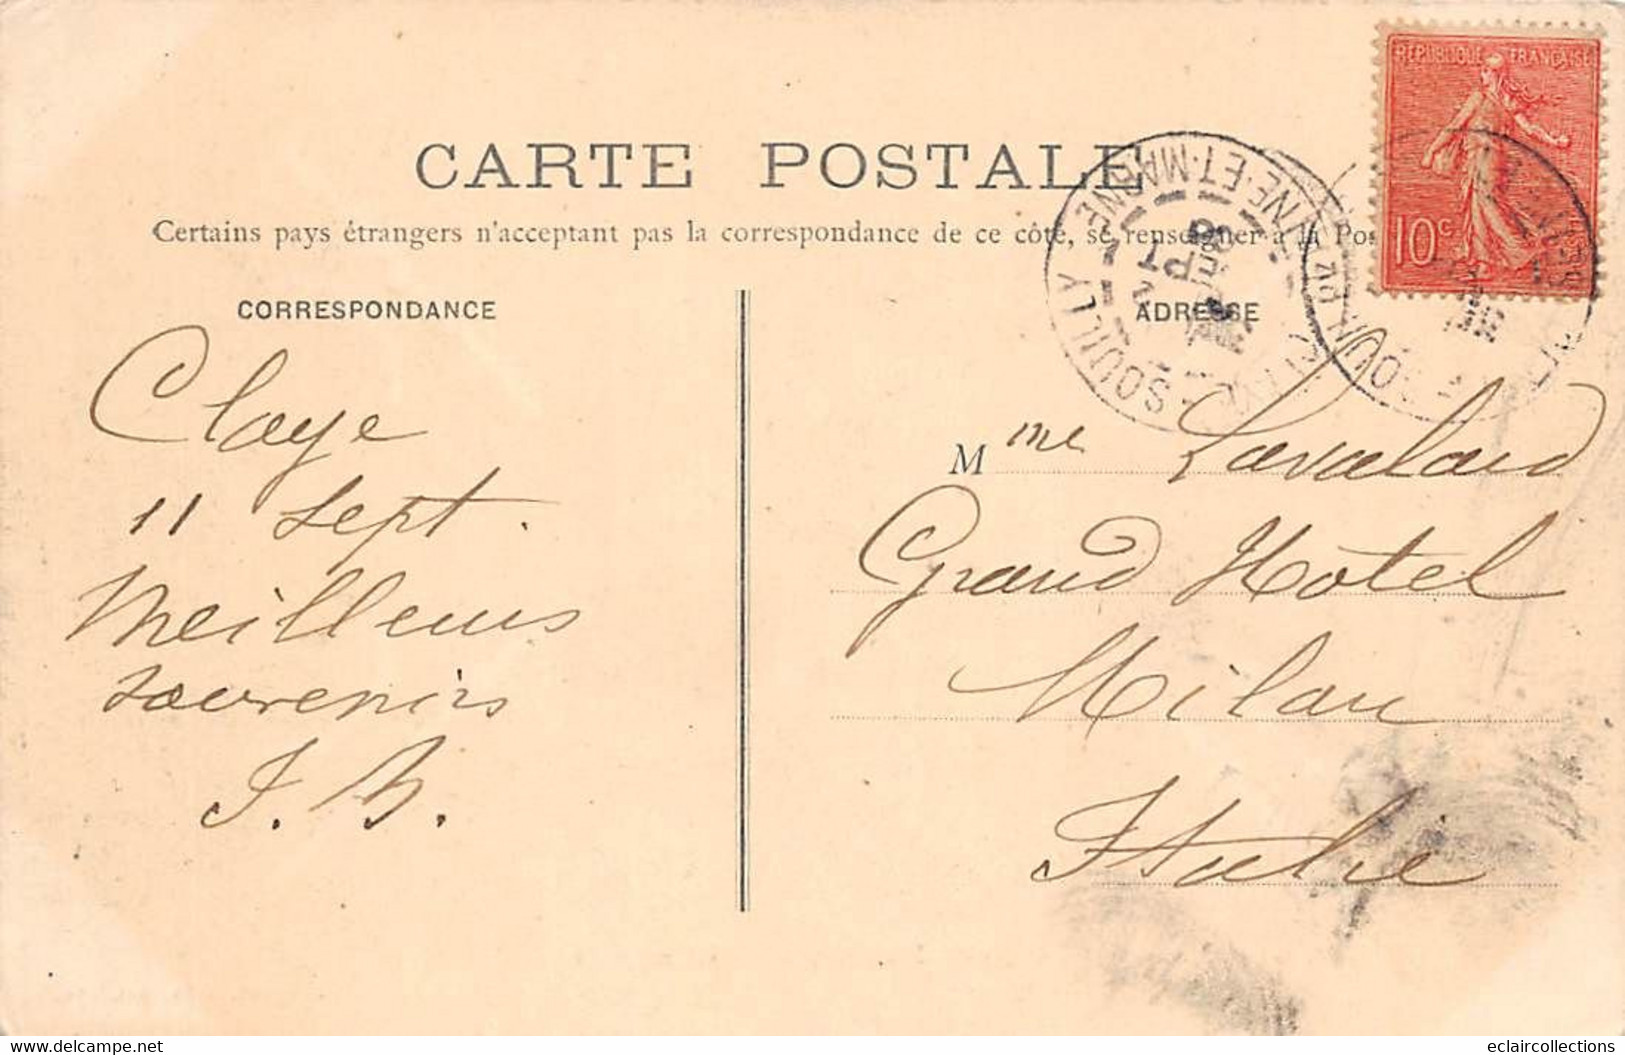 RÉPUBLIQUE FRANÇAISE
10c
CARTE POSTALE
Certains pays étrangers n'acceptant pas la correspondance de ce côté, se renseigner à la Pos
CORRESPONDANCE
ADRESSE
SOUILLY
SEINE-ET-MARNE
Claye
11 Sept.
Meilleurs
souvenirs
Mme Lavalard
Grand Hotel
Milan
Italie
Delcampe.net
eclaircollections